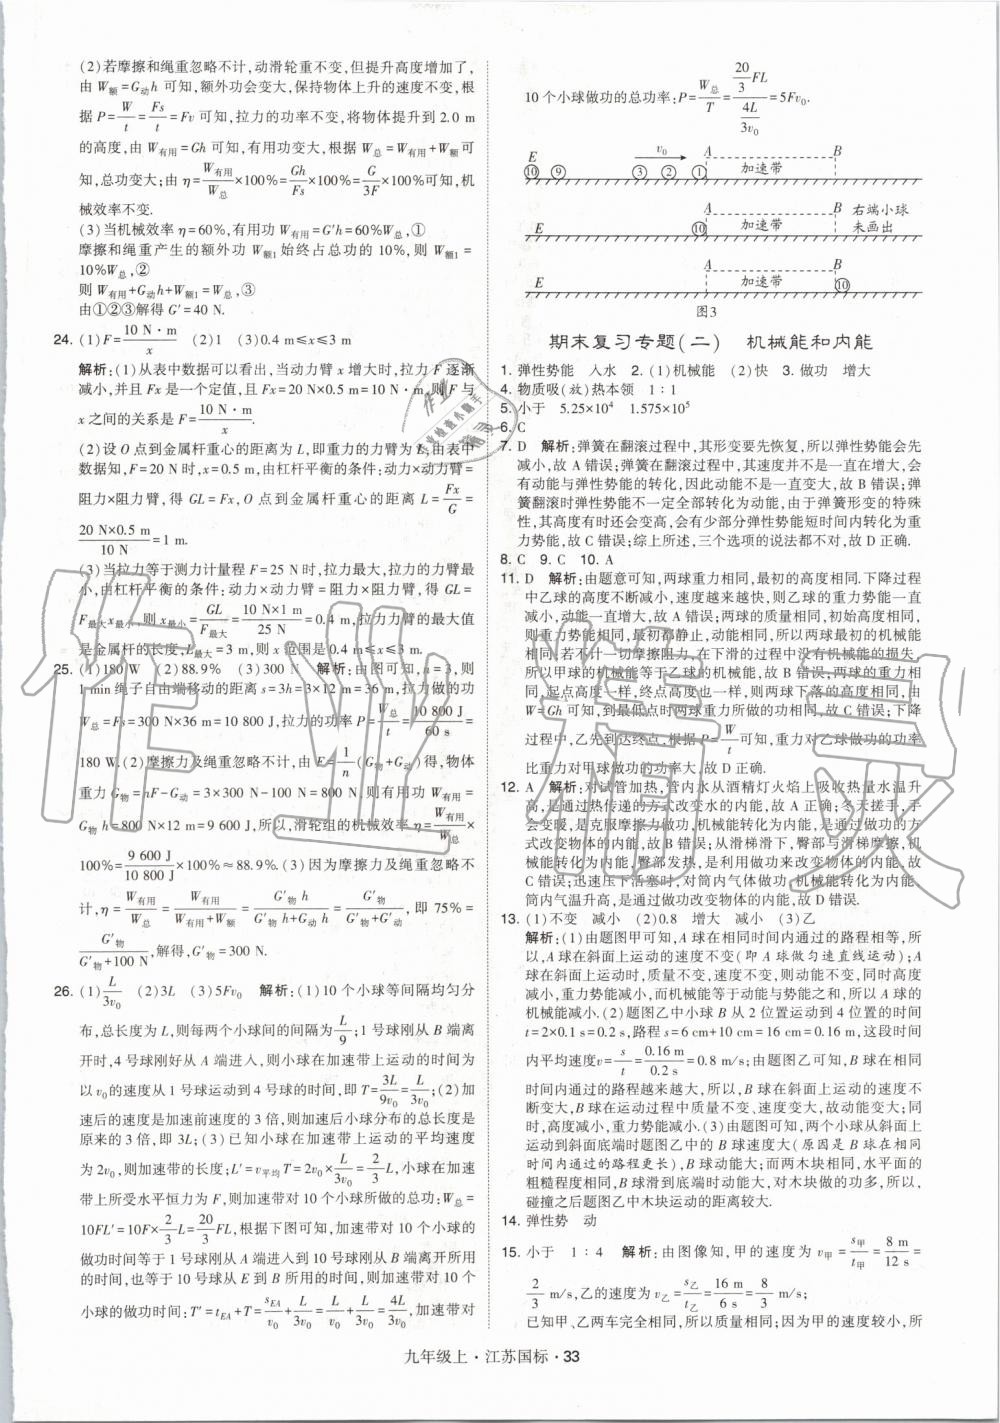 (2)若摩擦和绳重忽略不计,动滑轮重不变,但提升高度增加了,
由 W额=G动h 可知,额外功会变大,保持物体上升的速度不变,根
据 P=W/t=Fs/t=Fv 可知,拉力的功率不变,将物体提升到 2.0 m
的高度,由 W有用=Gh 可知,有用功变大,根据 W总=W有用+W额可
知,总功变大;由 η=W有用/W总×100%=Gh/Fs×100%=G/3F×100%可知,机
械效率不变.
(3)当机械效率 η=60%,有用功 W有用=G′h=60%W总,①
摩擦和绳重产生的额外功 W额1始终占总功的 10%,则 W额1=
10%W总,②
则 W有用+G动h+W额1=W总,③
由①②③解得 G′=40 N.
24. (1)F=10 N·m/x (2)1 (3)0.4 m≤x≤3 m
解析:(1)从表中数据可以看出,当动力臂 x 增大时,拉力 F 逐渐
减小,并且 Fx 是一个定值,且 Fx=20 N×0.5 m=10 N·m,则 F 与
x 之间的关系是 F=10 N·m/x.
(2)设 O 点到金属杆重心的距离为 L,即重力的力臂为 L,由表中
数据知,F=20 N时,x=0.5 m,由杠杆平衡的条件:动力×动力臂=
阻力×阻力臂,得 GL=Fx,O 点到金属杆重心的距离 L=Fx/G=
20 N×0.5 m/10 N=1 m.
(3)当拉力等于测力计量程 F=25 N时,拉力最大,拉力的力臂最
小,由杠杆平衡的条件:动力×动力臂=阻力×阻力臂,得 GL=
F最大x最小,则 x最小=GL/F最大=10 N×1 m/25 N=0.4 m,拉力力臂的最大值
是金属杆的长度,L最大=3 m,则 x 范围是 0.4 m≤x≤3 m.
25. (1)180 W (2)88.9% (3)300 N 解析:由图可知,n=3,则
1 min绳子自由端移动的距离 s=3h=3×12 m=36 m,拉力做的功
W总=Fs=300 N×36 m=10 800 J,拉力的功率 P=W总/t=10 800 J/60 s=
180 W.(2)摩擦力及绳重忽略不计,由 F=1/n(G物+G动)得,物体
重力 G物=nF-G动=3×300 N-100 N=800 N,则有用功 W有用=
G物h=800 N×12 m=9 600 J,所以,滑轮组的机械效率 η=W有用/W总×
100%=9 600 J/10 800 J×100%≈88.9%.(3)因为摩擦力及绳重忽略不
计,η=W有用/W总=W有用/W有用+W额=G′物h/G′物h+G动h=G′物/G′物+G动,即 75%=
G′物/G′物+100 N,解得,G′物=300 N.
26. (1)L/3v0 (2)3L (3)5Fv0 解析:(1)10 个小球等间隔均匀分
布,总长度为 L,则每两个小球间的间隔为L/9;1 号球刚从 B 端离
开时,4 号球刚好从 A 端进入,则小球在加速带上运动的时间为
以 v0 的速度从 1 号球运动到 4 号球的时间,即 T=3L/9v0=L/3v0;(2)加
速后的速度是加速前速度的 3 倍,则加速后小球分布的总长度是
原来的 3 倍,即 3L;(3)已知小球在加速带上运动的平均速度
为 2v0,则加速带的长度;L′=v平均T=2v0×L/3v0=2/3L,小球在加速
带上所受水平恒力为 F,则加速带对小球所做的总功:W总=
10FL′=10F×2/3L=20/3FL,根据下图可知,加速带对 10 个小球的
做功时间等于 1 号球刚从 A 端进入到 10 号球刚从 B 端离开所用
的时间,也等于 10 号球从 E 到 B 所用的时间,则加速带对 10 个
小球的做功时间:T′=tEA+T=sEA/v0+L/3v0=L/v0+L/3v0=4L/3v0,加速带对
10 个小球做功的总功率:P=W总/T=(20/3 FL)/(4L/3v0)=5Fv0.
E v0 A B
⑩ ⑨ ③ ② ① 加速带
E A B 右端小球
⑩ 加速带 未画出
E A B
加速带 ⑩
图3
期末复习专题(二) 机械能和内能
1. 弹性势能 入水 2. (1)机械能 (2)快 3. 做功 增大
4. 物质吸(放)热本领 1∶1
5. 小于 5.25×10⁴ 1.575×10⁵
6. C
7. D 解析:弹簧在翻滚过程中,其形变要先恢复,所以弹性势能会先
减小,故 A 错误;弹簧在翻滚过程中,其速度并不是一直在增大,会
有动能与弹性势能的转换,因此动能不是一直增大,故 B 错误;弹
簧翻滚时弹性势能不一定全部转化为动能,由于弹簧形变的特殊
性,其有时还会变高,会有少部分弹性势能短时间内转化为重力
势能,故 C 错误;综上所述,三个选项的说法都不对,故 D 正确.
8. C 9. C 10. A
11. D 解析:由题意可知,两球重力相同,最初的高度相同.下降过程
中乙球的高度不断减小,速度越来越快,则乙球的重力势能一直
减小,动能一直增大,故 A 错误;两球的质量相同,初始高度相同,
则重力势能相同,最初都静止,动能相同,所以两球最初的机械能
相同;若不计一切摩擦阻力,在下滑的过程中没有机械能的损失,
所以甲球的机械能等于乙球的机械能,故 B 错误;两球的质量相
同,起点高度一样,终点高度也一样,则两球下落的高度相同,由
W=Gh 可知,到最低点时两球重力所做的功相同,故 C 错误;下降
过程中,乙先到达终点,根据 P=W/t可知,重力对乙球做功的功率
比重力对甲球做功的功率大,故 D 正确.
12. A 解析:对试管加热,管内水从酒精灯火焰上吸收热量水温升
高,是通过热传递的方式改变水的内能,故 A 正确;冬天搓手,手
会变暖,是克服摩擦力做功,机械能转化为内能,是通过做功的方
式改变物体的内能,故 B 错误;从滑梯滑下,臀部与滑梯摩擦,机
械能转化为内能,臀部发热,是利用做功来改变物体的内能,故
C 错误;迅速压下活塞时,对筒内气体做功,机械能转化为内能,
筒内气温升高,是通过做功改变物体的内能,故 D 错误.
13. (1)不变 减小 (2)0.8 增大 减小 (3)乙
解析:(1)由题图甲可知,A 球在相同时间内通过的路程相等,所
以,A 球在斜面上运动的速度不变(即 A 球做匀速直线运动);A 球
在斜面上运动时,质量不变,速度不变,则动能不变,同时高度
减小,重力势能减小,而机械能等于动能与势能之和,所以 A 球的
机械能减小.(2)题图乙中小球 B 从 2 位置运动到 4 位置的时间
t=2×0.1 s=0.2 s,路程 s=6 cm+10 cm=16 cm=0.16 m,这段时间
内平均速度v=s/t=0.16 m/0.2 s=0.8 m/s;由题图乙可知,B 球在相同
时间内通过的路程越来越大,所以,B 球在斜面上运动的速度不
断变大,B 球在运动过程中质量不变、速度变大,故动能变大;同
时,高度减小,重力势能减小.(3)由题意可知,两个小球从斜面上
运动到斜面底端时题图乙中的 B 球速度大(原因是 B 球在相同
时间内通过的路程更长),故 B 球动能大;而两木块相同,水平面的
粗糙程度相同,B 球滑到底端时动能大,对木块做的功多,所以,
碰撞之后题图乙中木块运动的距离较大.
14. 弹性势 动
15. 小于 1∶4 解析:由图像知,甲的速度为 v甲=s甲/t甲=8 m/12 s=
2/3 m/s,乙的速度为 v乙=s乙/t乙=16 m/6 s=8/3 m/s;
已知甲、乙两车完全相同,质量相等,因为甲的速度较小,所
九年级上·江苏国标·33
作业精灵